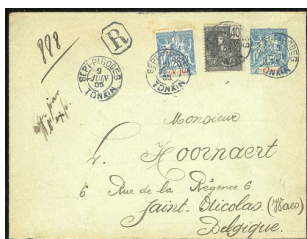 888
R
SEPT-PAGODES
9
JUIN
05
TONKIN
SEPT-PAGODES
TONKIN
40
15
Monsieur
L. Hoornaert
6 Rue de la Régence 6
Saint. Nicolas. (Waes)
Belgique.